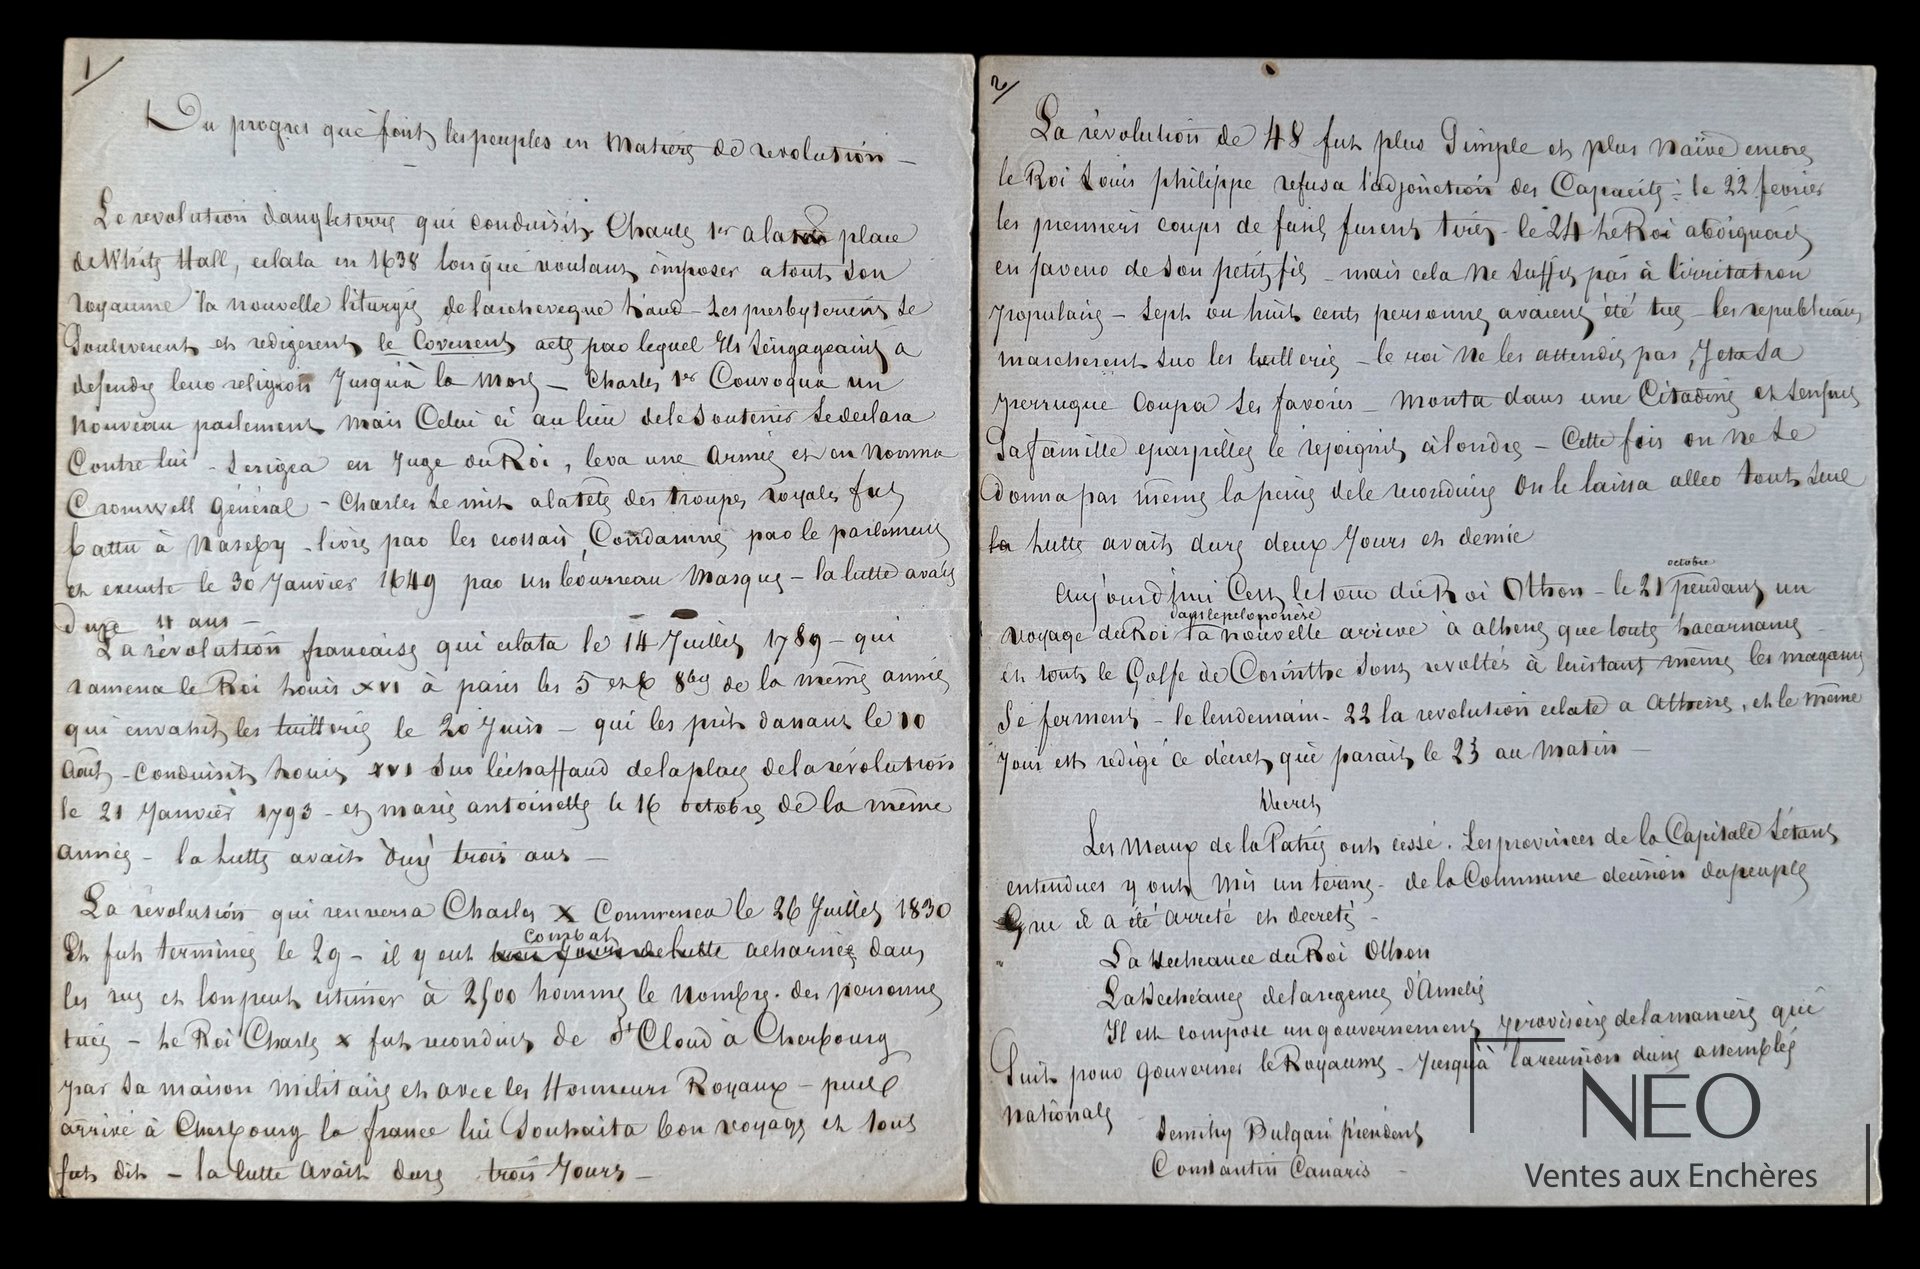 1/
Du progres que font les peuples en matiere de revolution —
La revolution d'angleterre qui conduisit Charles 1er a la place
de White Hall, eclata en 1638 lorsque voulant imposer a tout son
royaume la nouvelle liturgie de larcheveque Laud — Les presbyteriens se
Souleverent et redigerent le Covenent acte par lequel Ils sengageaient a
defendre leur religion Jusqu'à la mort — Charles 1er Convoqua un
nouveau parlement mais Celui ci au lieu de le soutenir se declara
Contre lui — serigea en Juge du Roi, leva une armée et en nomma
Cromwell général — Charles se mit a la tête des troupes royales fut
battu à Naseby — livré par les ecossais, Condamné par le parlement
et execute le 30 Janvier 1649 par un bourreau masqué — la lutte avait
duré 11 ans —
La révolution francaise qui eclata le 14 Juillet 1789 — qui
ramena le Roi Louis XVI à paris les 5 et 6 8bre de la même année
qui envahit les tuilleries le 20 Juin — qui les prit danant le 10
Aout — Conduisit Louis XVI sur léchaffaud de la place de la révolution
le 21 Janvier 1793 — et marie antoinette le 16 octobre de la même
année — la lutte avait duré trois ans —
La révolution qui renversa Charles X Commenca le 26 Juillet 1830
Et fut terminée le 29 — il y eut trois jours de lutte combat acharnée dans
les rues et lon peut estimer à 2500 hommes le nombre des personnes
tuées — Le Roi Charles X fut reconduit de St Cloud à Cherbourg
par sa maison militaire et avec les Honneurs Royaux — puis
arrivé à Cherbourg la france lui Souhaita bon voyage et tout
fut dit — la lutte avait duré trois Jours —
2/
La révolution de 48 fut plus Simple et plus naïve encore
le Roi Louis philippe refusa l'adjonction des Capacités : le 22 fevrier
les premiers coups de fusil furent tirés — le 24 Le Roi abdiquait
en faveur de son petit fils — mais cela ne suffit pas à l'irritation
populaire — sept ou huit cents personnes avaient été tués — les republicains
marcherent sur les tuilleries — le roi ne les attendit pas, Jeta sa
perruque Coupa ses favoris — monta dans une Citadine et senfuit
Sa famille eparpillée le rejoignit à londres — Cette fois on ne se
donna pas même la peine de le reconduire On le laissa aller tout seul
la lutte avait duré deux Jours et demie
Aujourd'hui C'est le tour du Roi Othon — le 21 octobre pendant un
voyage du Roi dans le peloponèse la nouvelle arrive à athenes que toute Lacarnanie
et tout le Golfe de Corinthe sont revoltés à linstant même les magasins
se ferment — le lendemain — 22 la revolution eclate a Athenes, et le même
Jour est redigé ce décret qui parait le 23 au matin —
Decret
Les Maux de la Patrie ont cessé. Les provinces de la Capitale s'étant
entendues y ont mis un terme — de la Commune decision du peuple
Que il a été arreté et decreté —
La Decheance du Roi Othon
La Decheance de la regence d'Amelie
Il est compose un gouvernement provisoire de la manière qui
Suit pour gouverner le Royaume — Jusqu'à la reunion dune assemblée
nationale
Demitry Bulgari président
Constantin Canaris —
NEO
Ventes aux Enchères